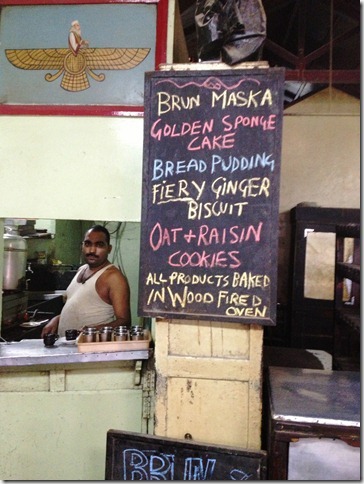 BRUN MASKA
GOLDEN SPONGE
CAKE
BREAD PUDDING
FIERY GINGER
BISCUIT
OAT + RAISIN
COOKIES
ALL PRODUCTS BAKED
IN WOOD FIRED
OVEN
BRUN